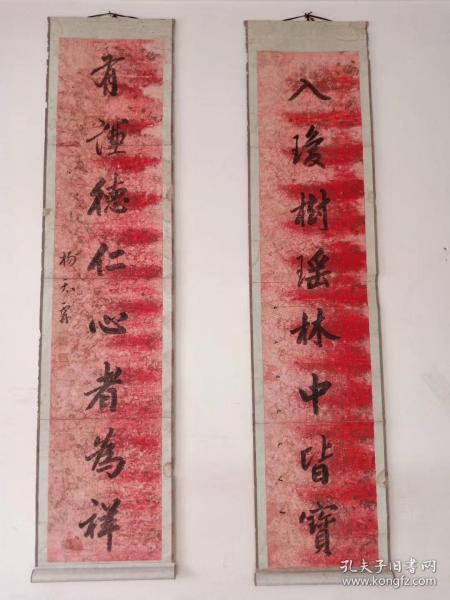 入瓊樹瑶林中皆寶
有謙德仁心者為祥
孔夫子旧书网
www.kongfz.com